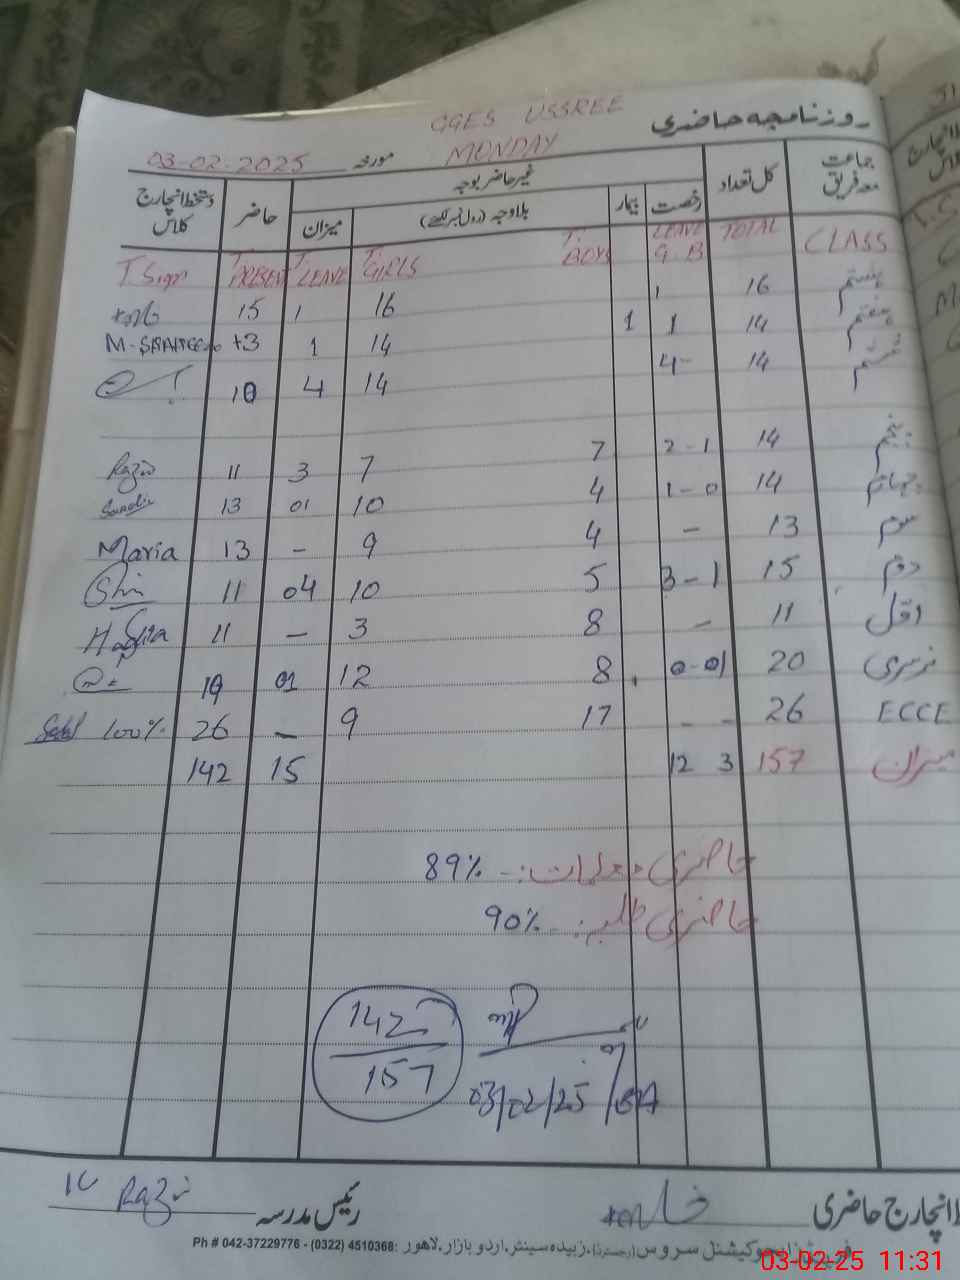 GGES USSREE روزنامچہ حاضری
03-02-2025 مورخہ MONDAY
جماعت معہ فریق کل تعداد غیر حاضر بوجہ حاضر دستخط انچارج کلاس
رخصت بیمار بلاوجہ (رول نمبر لکھئے) میزان
CLASS TOTAL LEAVE G. B T. BOYS T. GIRLS T. LEAVE T. PRESENT T Sign
ہشتم 16 1 16 1 15
ہفتم 14 1 1 14 1 13
ششم 14 4- 14 4 10
پنجم 14 2-1 7 7 3 11 Razia
چہارم 14 1-0 4 10 01 13
سوم 13 - 4 9 - 13 Maria
دوم 15 3-1 5 10 04 11
اول 11 - 8 3 - 11
نرسری 20 0-01 8 12 01 19
ECCE 26 - - 17 9 - 26 100%
میزان 157 3 12 15 142
حاضری معلمات:- 89%
حاضری طلبہ:- 90%
142
157
03/02/25
انچارج حاضری رئیس مدرسہ
اردو بازار، لاہور Ph # 042-37229776 - (0322) 4510368:
03-02-25 11:31